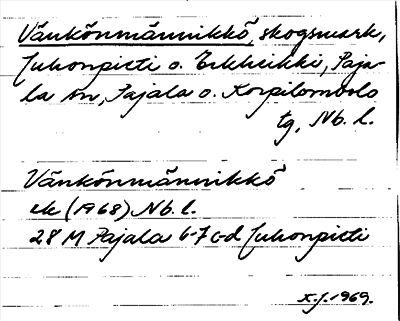 Vänkönmännikkö, skogsmark,
Juhonpieti o. Erkheikki, Paja-
la sn, Pajala o. Korpilombolo
tg, Nb. l.
Vänkönmännikkö
ek (1968) Nb. l.
28 M Pajala 6-7 c-d Juhonpieti
K.J. 1969.